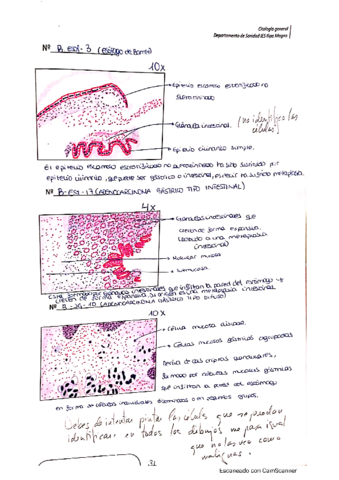 Citología general
Departamento de Sanidad IES Fpe Magno
Nº B. EST-3 (Esófago de Barret)
10x
Epitelio escamo estratificado no
queratinizado
Glándula intestinal. (no identifico las
células)
Epitelio cilíndrico simple.
El epitelio escamoso estratificado no queratinizado ha sido sustituido por
epitelio cilíndrico, que puede ser gástrico o intestinal, es decir ha sufrido metaplasia.
Nº B-EST-17 (ADENOCARCINOMA GÁSTRICO TIPO INTESTINAL)
4x
Glándulas intestinales que
crecen de forma expansiva.
(debido a una metaplasia
intestinal)
Muscular mucosa
Submucosa
glándulas intestinales que infiltran la pared del estómago y
crecen de forma expansiva. Surgen en una metaplasia intestinal.
(ADENOCARCINOMA GÁSTRICO TIPO DIFUSO)
10x
Célula mucosa
Células mucosas gástricas agrupadas
glandulares,
formado por células mucosas gástricas
que infiltran la pared del estómago
en forma de células individuales o en pequeños grupos.
Debes de intentar pintar las células que se puedan
identificar en todos los dibujos me da igual
que no las vea como
Escaneado con CamScanner